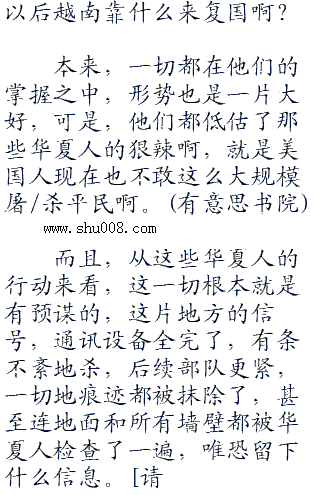 以后越南靠什么来复国啊？
本来，一切都在他们的
掌握之中，形势也是一片大
好，可是，他们都低估了那
些华夏人的狠辣啊，就是美
国人现在也不敢这么大规模
屠/杀平民啊。(有意思书院)
www.shu008.com
而且，从这些华夏人的
行动来看，这一切根本就是
有预谋的，这片地方的信
号，通讯设备全完了，有条
不紊地杀，后续部队更紧，
一切地痕迹都被抹除了，甚
至连地面和所有墙壁都被华
夏人检查了一遍，唯恐留下
什么信息。[请